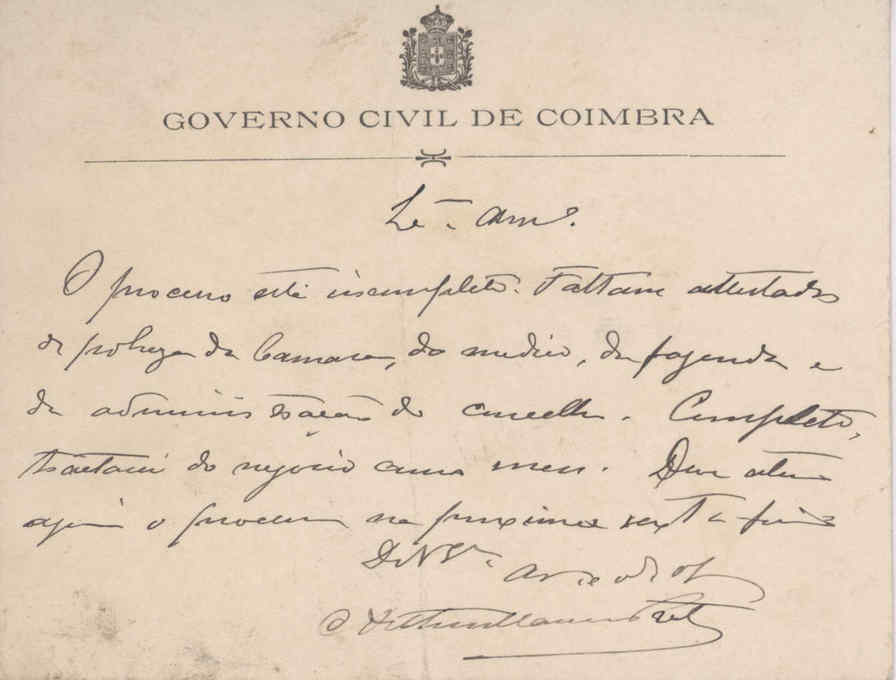 GOVERNO CIVIL DE COIMBRA
Am.º
O processo está incompleto. Faltam attestados
de pobreza da Camara, do medico, da fazenda e
da administração do concelho. Completo,
tratarei do negocio como meu. Deve estar
aqui o processo na proxima sexta feira
De V. Ex.ª